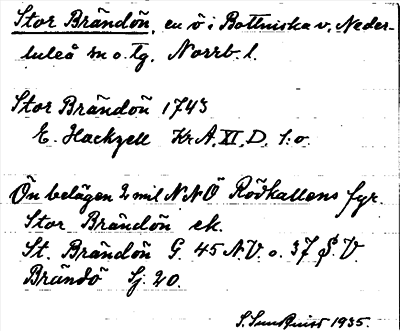 Stor Brändön, en ö i Bottniska v, Neder-
luleå sn o. tg. Norrb. l.
Stor Brändön 1743
E. Hackzell KrA, XI, D, 1:o.
Ön belägen 2 mil NNÖ Rödkallens fyr.
Stor Brändön ek.
St. Brändön G. 45 N.V. o. 37 S.V
Brändö Sj. 20.
S. Sundquist 1935.